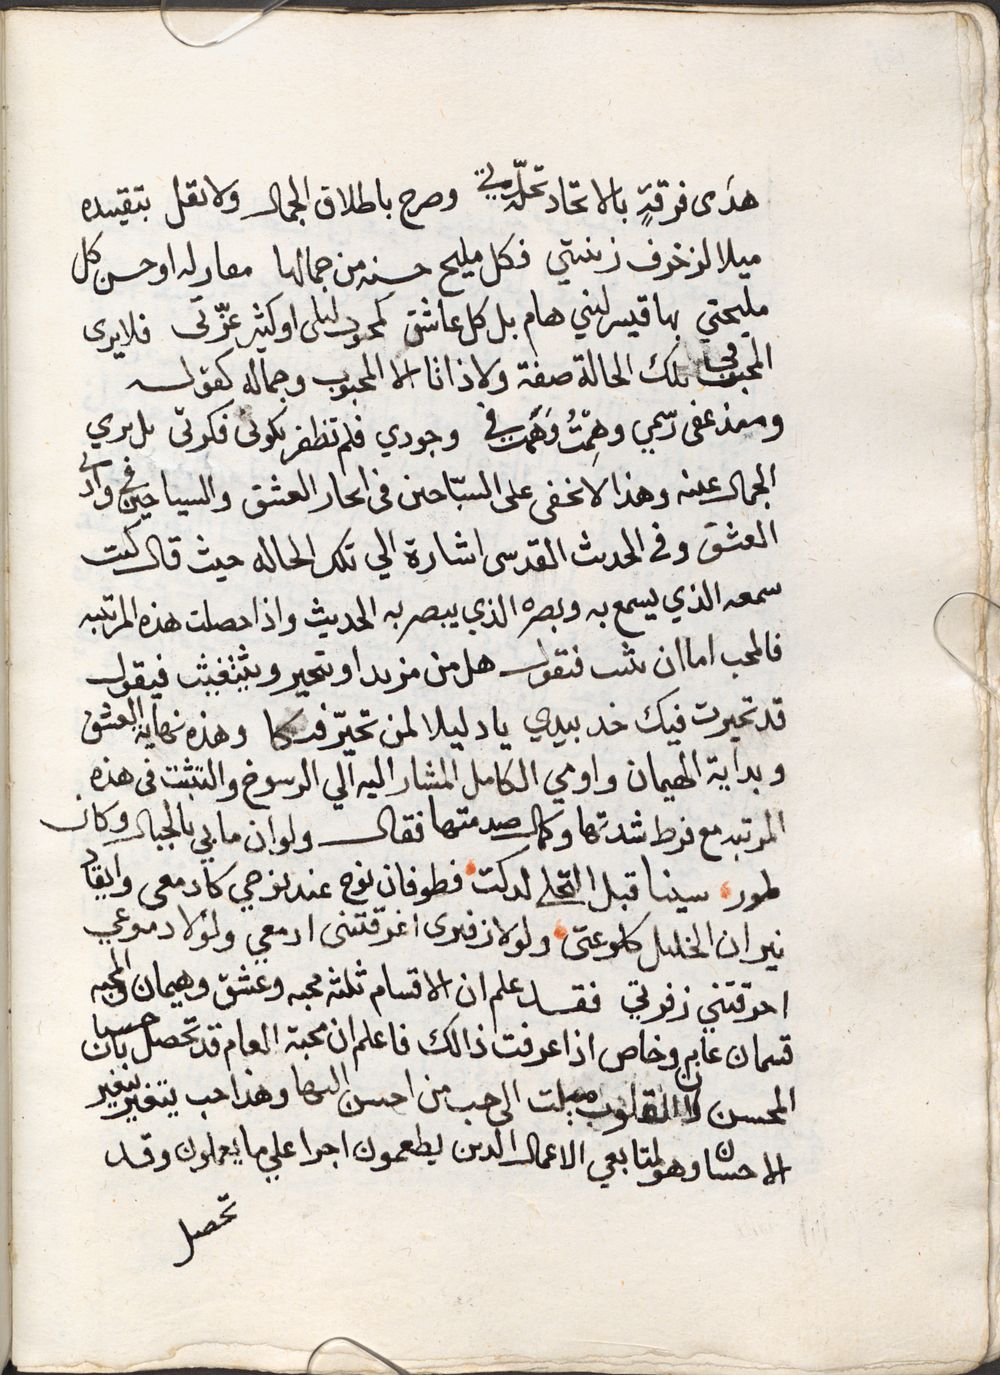 هدى فرقة بالاتحاد تحدّت وصرح باطلاق الجمال ولا تقل بتقييده
ميلا لزخرف زينتي فكل مليح حسنه من جمالها معار له او حسن كل
مليحتي بها قيس لبني هام بل كل عاشق كمجنون ليلى او كثير عزّتى فلا يرى
المحبوب في تلك الحالة صفة ولا ذاتا الا المحبوب وجماله كقوله
ومنذ عفى رسمي وهِمتُ وَهَمت في وجودي فلم تظفر بكونى فكرتى بل يري
الجمال عينه وهذا لا تخفى على السبّاحين فى ابحار العشق والسياحين في وادي
العشق وفى الحديث القدسى اشارة الي تلك الحاله حيث قال كنت
سمعه الذي يسمع به وبصره الذي يبصر به الحديث واذا حصلت هذه المرتبه
فالمحب اما ان يثبت فيقول هل من مزيد او يتحير ويتثبث فيقول
قد تحيرت فيك خد بيدي يا دليلا لمن تحيّر فيكا وهذه نهاية العشق
وبداية الهيمان واومي الكامل المشار اليه الي الرسوخ والتثبت فى هذه
المرتبه مع فرط شدتها وكمال صدمتها فقال ولو ان ما بي بالجبال وكان
طور سينا قبل التجلي لدكت فطوفان نوح عند نوحي كادمعى وايقاد
نيران الخليل كلوعتى ولولا زفيرى اغرقتنى ادمعي ولولا دموعي
احرقتني زفرتي فقد علم ان الاقسام ثلثه محبه وعشق وهيمان والمحبه
قسمان عام وخاص اذا عرفت ذالك فاعلم ان محبة العام قد تحصل باحسان
المحسن لان القلوب جبلت الى حب من احسن اليها وهذا حب يتغير بتغير
الاحسان وهو لمتابعي الاعمال الدين يطعمون اجرا علي ما يعملون وقد
تحصل